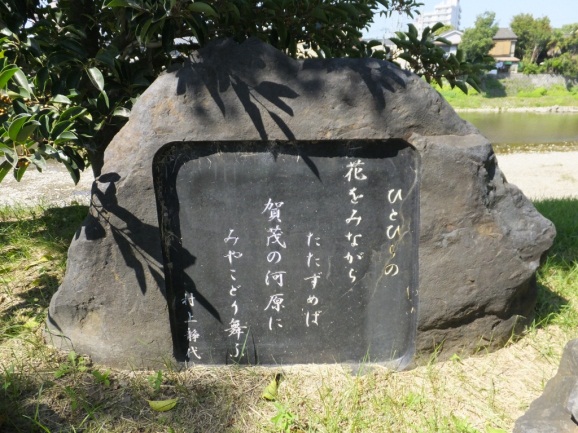 ひとひらの
花をみながら
たたずめば
賀茂の河原に
みやこどり舞ふ
村上静代